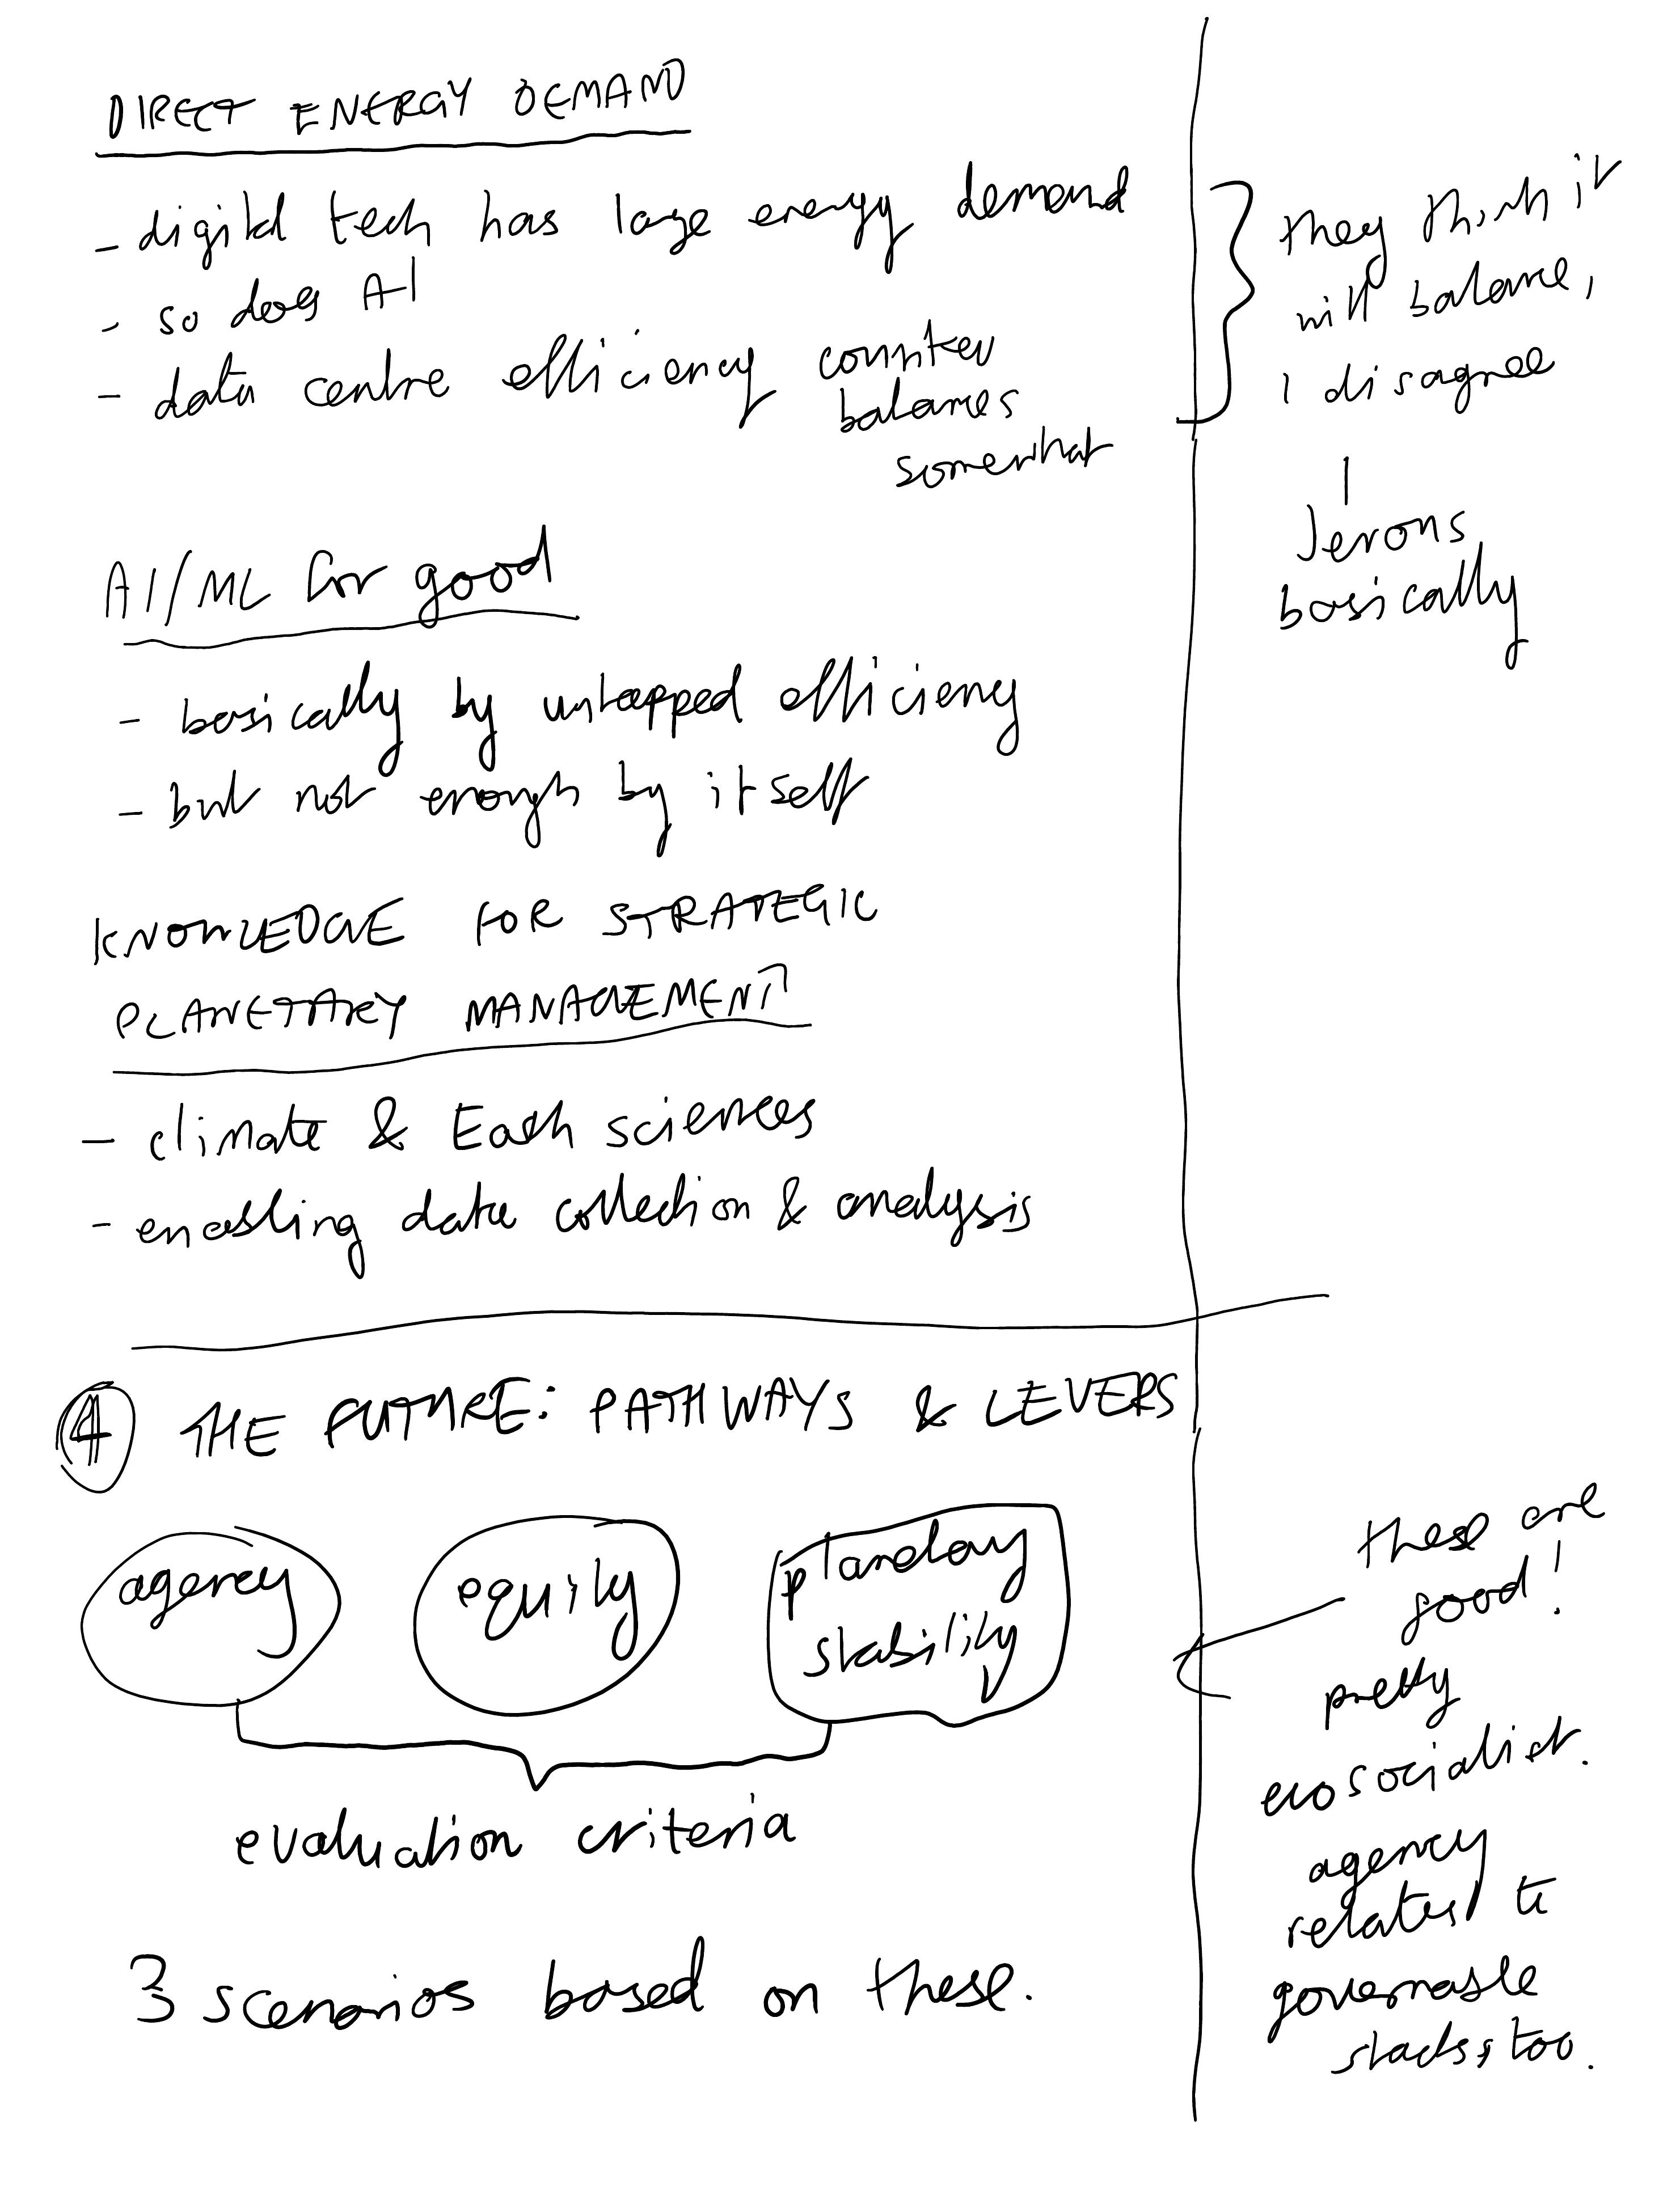 DIRECT ENERGY DEMAND
- digital tech has large energy demand
- so does AI
- data centre efficiency counter
balances
somewhat
they think it
will balance,
I disagree
|
Jevons
basically
AI/ML for good
- basically by untapped efficiency
- but not enough by itself
KNOWLEDGE FOR STRATEGIC
PLANETARY MANAGEMENT
- climate & Earth sciences
- enabling data collection & analysis
4 THE FUTURE: PATHWAYS & LEVERS
agency
equity
planetary
stability
evaluation criteria
3 scenarios based on these.
these are
good!
pretty
ecosocialist.
agency
relates to
governable
stacks, too.